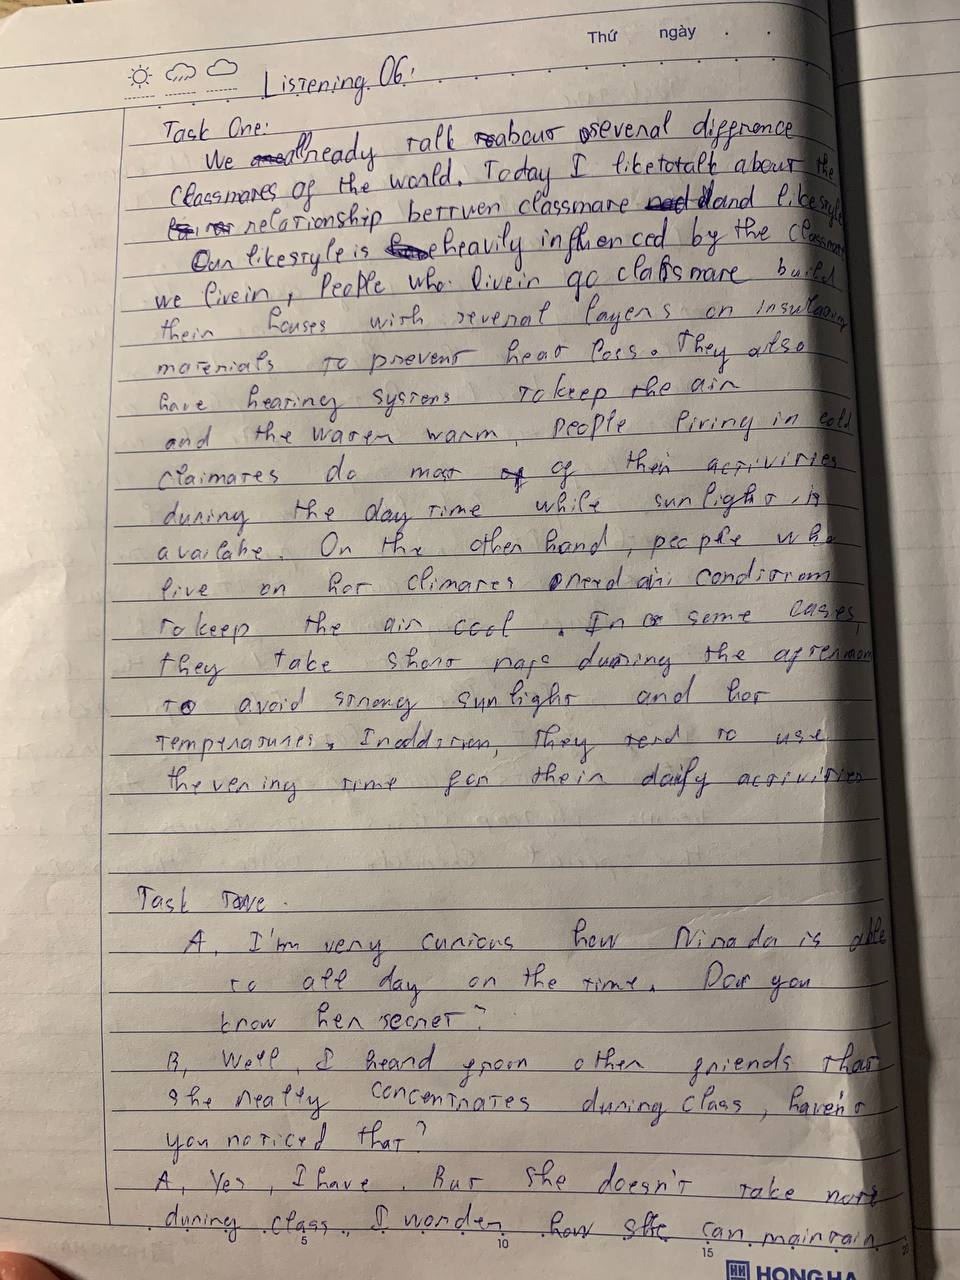 Thứ ngày . .
Listening 06:
Task One:
We already talk about several diffrence
classmares of the world. Today I like to talk about the
relationship bettwen classmare and likestyle
Our likestyle is heavily influenced by the classmare
we live in, People who live in go classmare build
their houses with several layers on insulaning
materials to prevent hear loss. They also
have hearing systems to keep the air
and the warer warm. People living in cold
claimares do most of their activities
during the day time while sunlight is
availabe. On the other hand, people who
live on hot climares need air condition
to keep the air cool. In some cases,
they take short naps during the afrernoon
to avoid strong sunlight and hot
temperatures. In addition, they tend to use
thevening time for their daily activities
Task Towe.
A, I'm very curious how Ninada is able
to all day on the time. Dor you
know her secret?
B, Well, I heard from other friends that
she really concentrates during class, haven't
you noticed that?
A, Yes, I have. But she doesn't take note
during class. I wonder how she can maintain
5 10 15 20
HONG HA